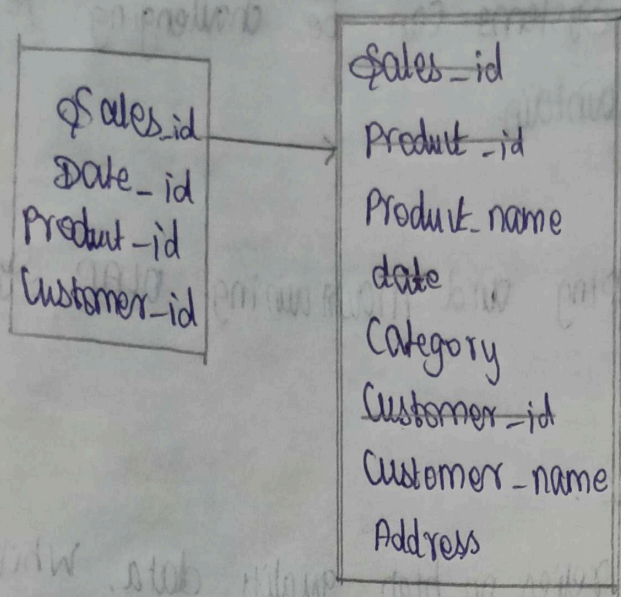 Sales_id
Date_id
Product_id
Customer_id
Sales_id
Product_id
Product_name
date
Category
Customer_id
Customer_name
Address